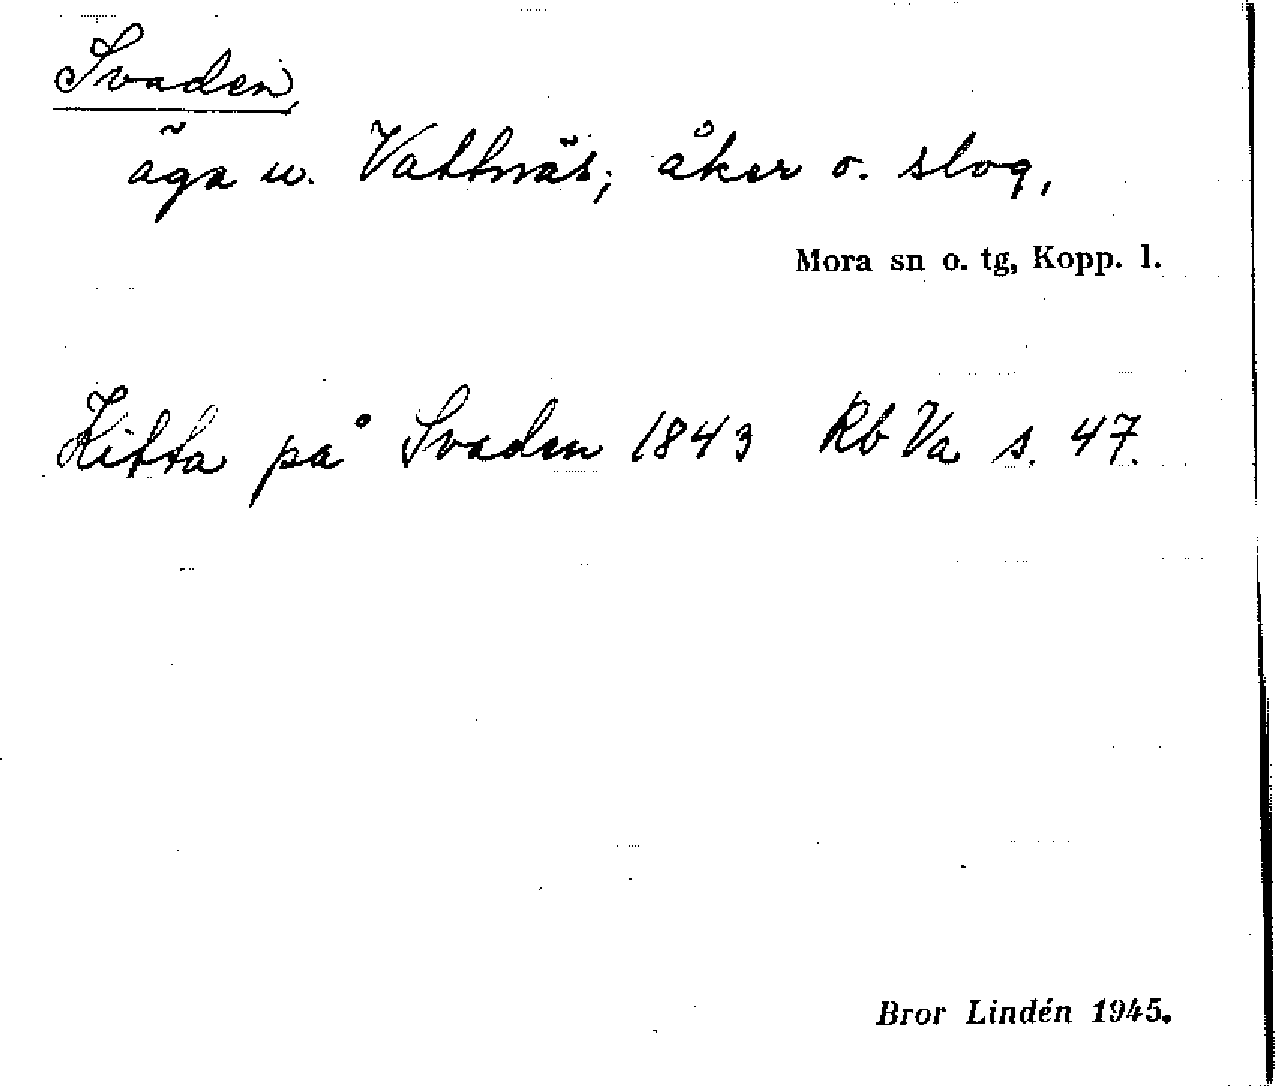 Svaden
äga u. Vattnäs; åker o. slog,
Mora sn o. tg, Kopp. l.
Hitta på Svaden 1843 Rb Va s. 47.
Bror Lindén 1945.